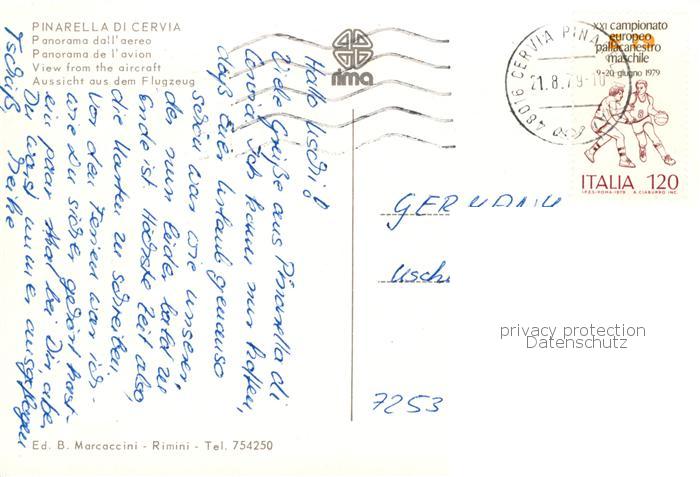 PINARELLA DI CERVIA
Panorama dall'aereo
Panorama de l'avion
View from the aircraft
Aussicht aus dem Flugzeug
rima
Hallo Uschi!
Viele Grüße aus Pinarella di
Cervia. Ich kann nur hoffen,
daß Euer Urlaub genauso
schön war wie unserer,
der nun leider bald zu
Ende ist. Höchste Zeit also,
die Karten zu schreiben.
Vor den Ferien war ich
wie Du sicher gehört hast
ein paar Mal bei Dir, aber
Du warst immer ausgeflogen
Tschüß
XXI campionato
europeo
pallacanestro
maschile
9-20 giugno 1979
ITALIA 120
I.P.Z.S.-ROMA-1979 A. CIABURRO INC.
48016 CERVIA PINA
21.8.79-10
GERMANIA
Uschi
privacy protection
Datenschutz
7253
Ed. B. Marcaccini - Rimini - Tel. 754250